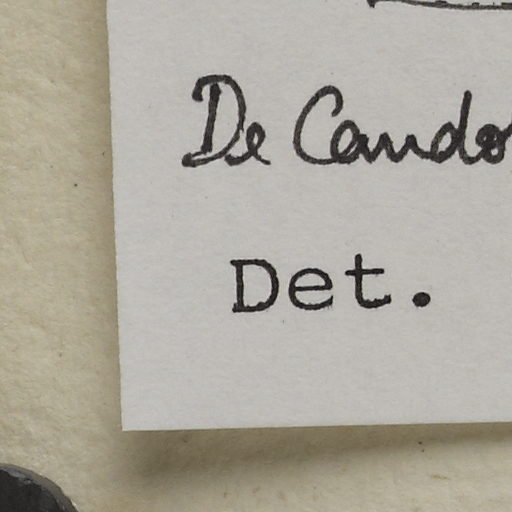 De Cando
Det.